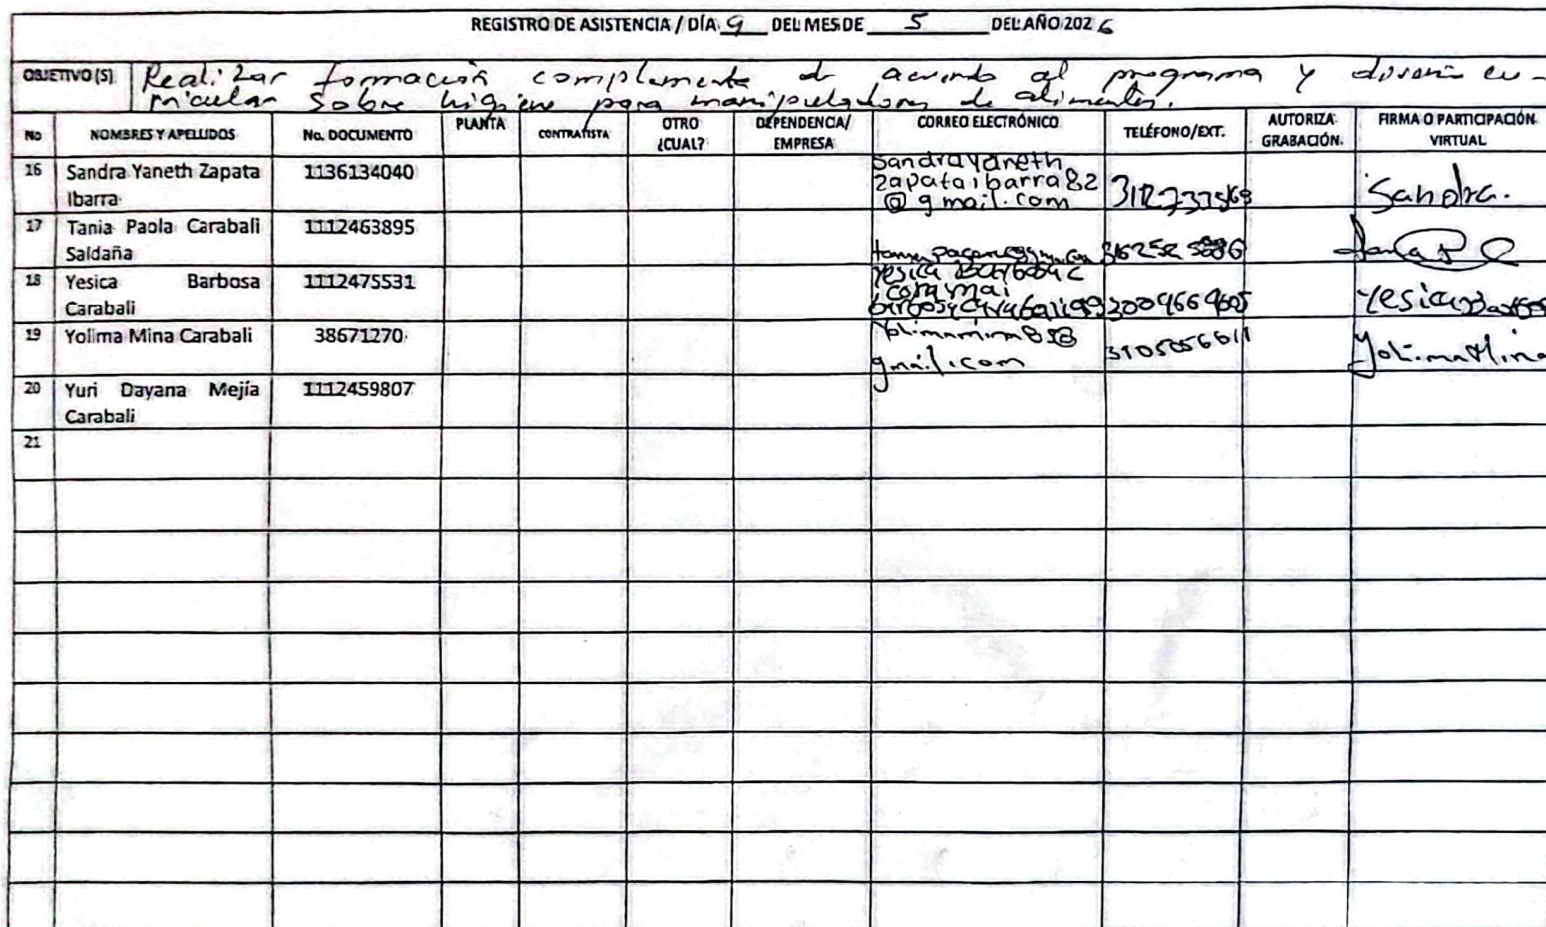 REGISTRO DE ASISTENCIA / DÍA 9 DEL MES DE 5 DEL AÑO 2026
OBJETIVO(S) Realizar formación complementa de acuerdo al programa y diseño cu-
rricular sobre higiene para manipuladores de alimentos.
No NOMBRES Y APELLIDOS No. DOCUMENTO PLANTA CONTRATISTA OTRO ¿CUAL? DEPENDENCIA/ EMPRESA CORREO ELECTRÓNICO TELÉFONO/EXT. AUTORIZA GRABACIÓN. FIRMA O PARTICIPACIÓN VIRTUAL
16 Sandra Yaneth Zapata Ibarra 1136134040 sandrayaneth
zapataibarra82
@gmail.com Sandra.
17 Tania Paola Carabali Saldaña 1112463895
18 Yesica Barbosa Carabali 1112475531 3009669605 Yesica
19 Yolima Mina Carabali 38671270
gmail.com 3105056611 Yolima Mina
20 Yuri Dayana Mejía Carabali 1112459807
21